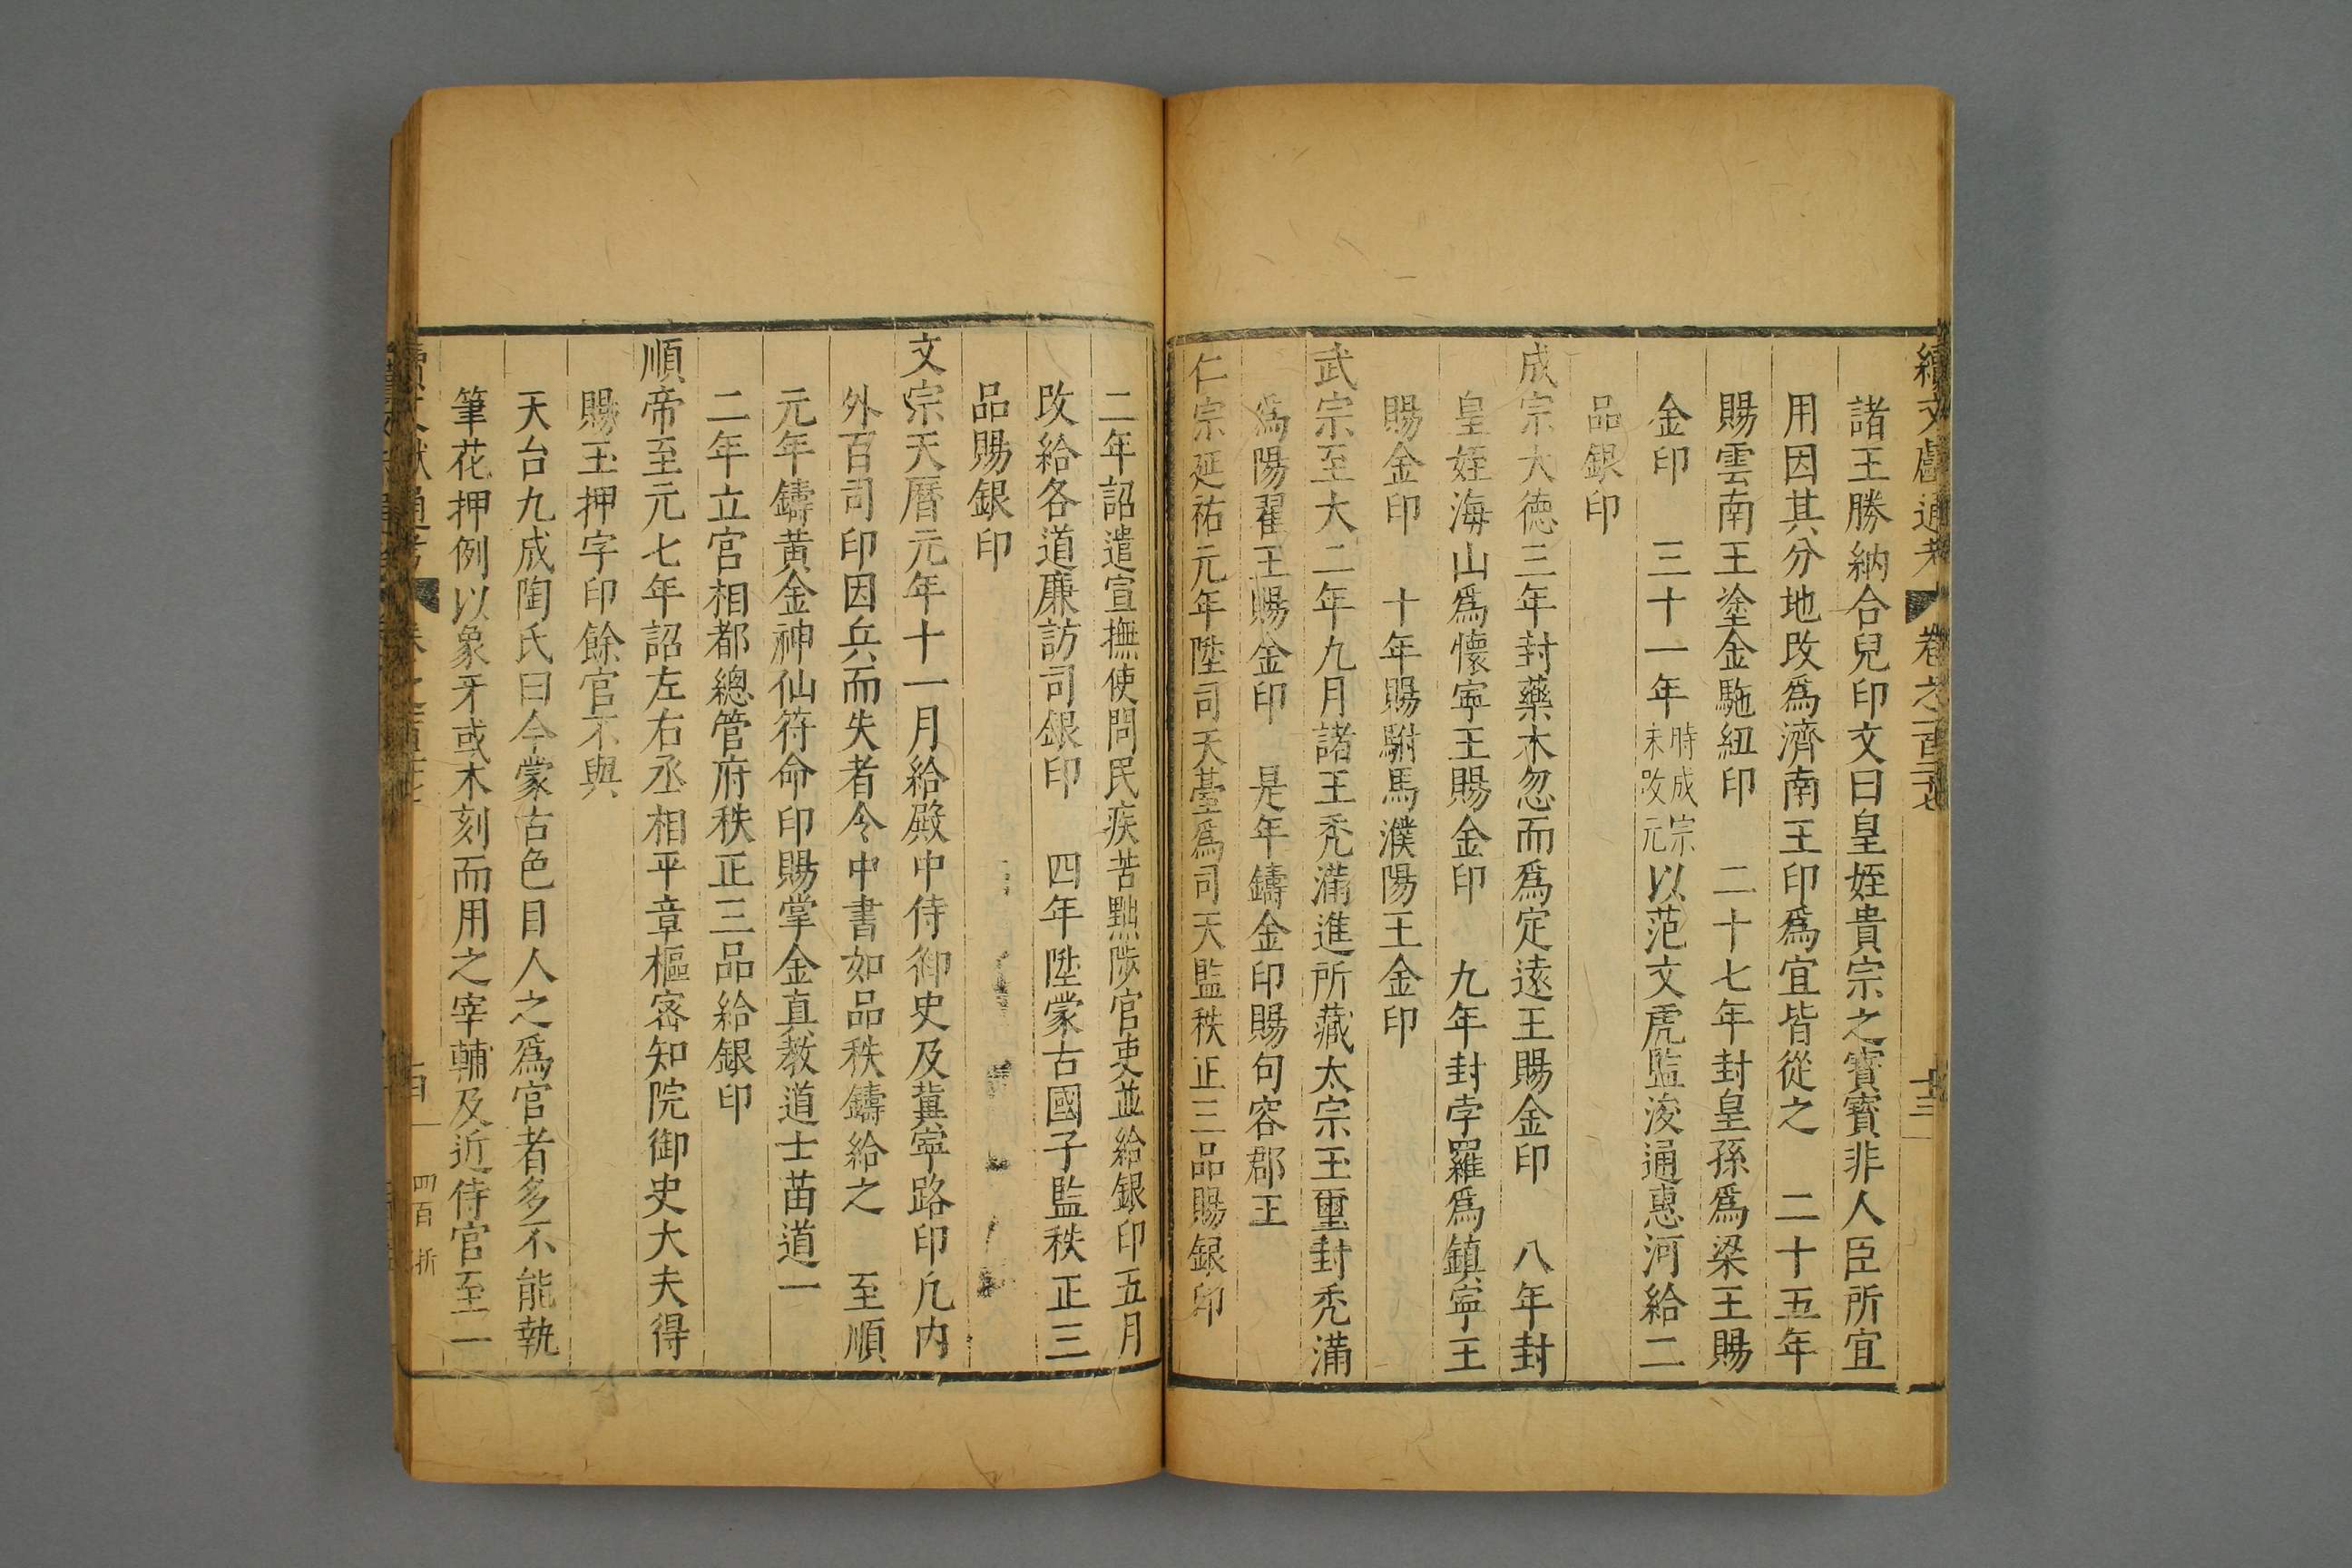 續文獻通考 卷之百 十三
諸王勝納合兒印文曰皇姪貴宗之寶寶非人臣所宜
用因其分地改爲濟南王印爲宜皆從之 二十五年
賜雲南王塗金駞紐印 二十七年封皇孫爲梁王賜
金印 三十一年時成宗未改元以范文虎監浚通惠河給二
品銀印
成宗大德三年封藥木忽而爲定遠王賜金印 八年封
皇姪海山爲懷寧王賜金印 九年封孛羅爲鎮寧王
賜金印 十年賜駙馬濮陽王金印
武宗至大二年九月諸王禿滿進所藏太宗玉璽封禿滿
爲陽翟王賜金印 是年鑄金印賜句容郡王
仁宗延祐元年陞司天臺爲司天監秩正三品賜銀印
二年詔遣宣撫使問民疾苦黜陟官吏並給銀印五月
改給各道廉訪司銀印 四年陞蒙古國子監秩正三
品賜銀印
文宗天曆元年十一月給殿中侍御史及冀寧路印凡内
外百司印因兵而失者令中書如品秩鑄給之 至順
元年鑄黃金神仙符命印賜掌金真教道士苗道一
二年立宮相都總管府秩正三品給銀印
順帝至元七年詔左右丞相平章樞密知院御史大夫得
賜玉押字印餘官不與
天台九成陶氏曰今蒙古色目人之爲官者多不能執
筆花押例以象牙或木刻而用之宰輔及近侍官至一
四百 折